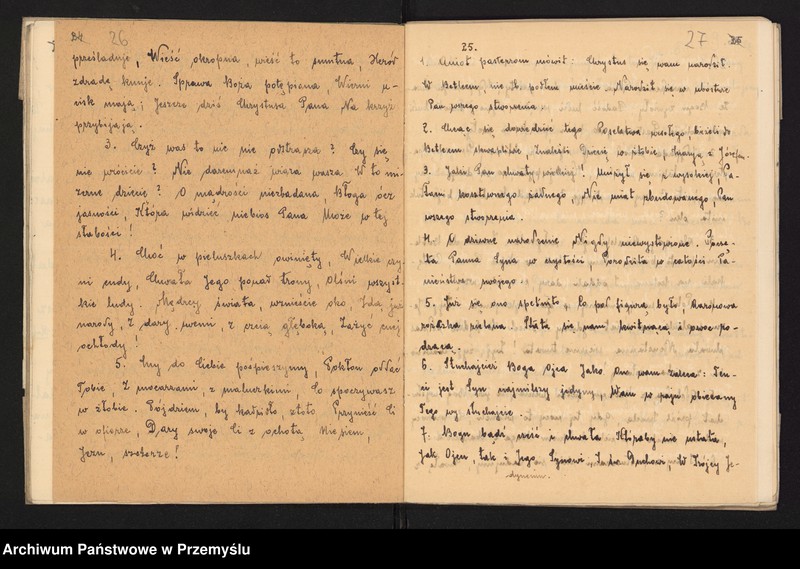 24 26
prześladuje, Wieść okropna, wieść to smutna, Herod
zdradę knuje. Sprawa Boża potępiana, Wierni u-
cisk mają; Jeszcze dziś Chrystusa Pana Na krzyż
przybijają.
3. Czyż was to nic nie odstrasza? Czy się
nie wrócicie? Nie daremnaż wiara wasza W to mi-
zerne dziecię? O mądrości niezbadana, Błoga
jasności, Która widzieć niebios Pana Może w tej
słabości!
4. Choć w pieluszkach owinięty, Wielkie czy-
ni cudy, Chwała Jego ponad trony, Olśni wszyst-
kie ludy. Mędrcy świata, wznieście oko, Idą już
narody, Z dary, z czcią głęboką, Zażyć
ochłody!
5. I my do Ciebie pospieszymy, Pokłon oddać
Tobie, Z mocarzami, z maluczkimi, Co spoczywasz
w żłobie. Pójdziem, by kadzidło, złoto Przynieść Ci
w ofierze, Dary swoje Ci z ochotą Niesiem,
Jezu, szczerze!
25. 27
1. Anioł pasterzom mówił: Chrystus się wam narodził.
W Betlejem, nie b. podłem mieście Narodził się w ubóstwie
Pan wszego stworzenia.
2. Chcąc się dowiedzieć tego Poselstwa wesołego, bieżeli do
Betlejem skwapliwie, Znaleźli Dziecię w żłobie, Maryję z Józefem.
3. Jaki Pan chwały wielkiej! Uniżył się z wysokiej, Pa-
łacu kosztownego żadnego, Nie miał zbudowanego Pan
wszego stworzenia.
4. O dziwne narodzenie Nigdy niewysłowione. Poczę-
ła Panna Syna w czystości, Porodziła w całości Pa-
nieństwa swojego.
5. Już się ono spełniło, Co pod figurą było; Aaronowa
różdżka zielona Stała się nam kwitnąca i owoc po-
dząca.
6. Słuchajcież Boga Ojca Jako On wam zaleca: Ten-
ci jest Syn najmilszy jedyny, Wam w raju obiecany
Tego wy słuchajcie.
7. Bogu bądź cześć i chwała Któraby nie ustała,
Jak Ojcu, tak i Jego Synowi, I św. Duchowi, W Trójcy Je-
dynemu.
Archiwum Państwowe w Przemyślu